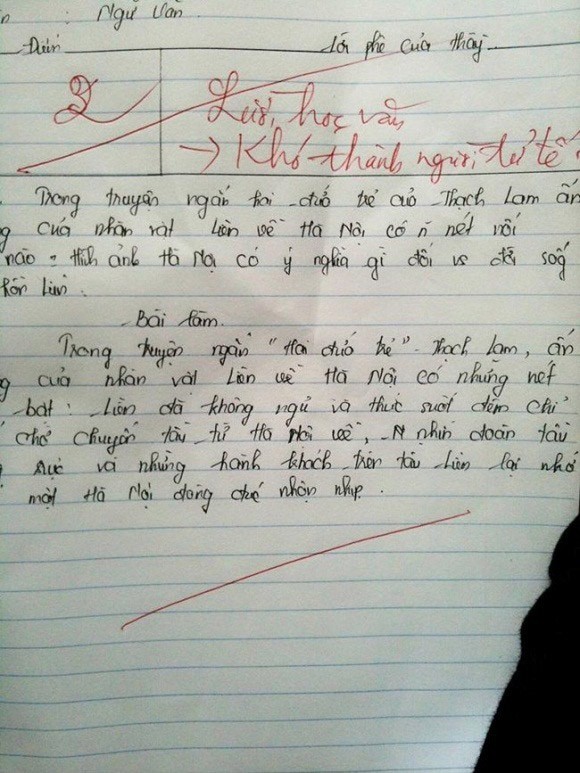 : Ngữ Văn
Điểm
Lời phê của thầy
2
Lười học văn
→ Khó thành người tử tế
Trong truyện ngắn hai đứa trẻ của Thạch Lam ấn
g của nhân vật Liên về Hà Nội có n nét nổi
nào = hình ảnh Hà Nội có ý nghĩa gì đối vs đời sốg
hồn Liên.
Bài làm.
Trong truyện ngắn "Hai đứa trẻ" - Thạch Lam, ấn
g của nhân vật Liên về Hà Nội có những nét
bật: Liên đã không ngủ và thức suốt đêm chỉ
chờ chuyến tàu từ Hà Nội về, nhìn đoàn tàu
rực và những hành khách trên tàu Liên lại nhớ
một Hà Nội đông đúc nhộn nhịp.